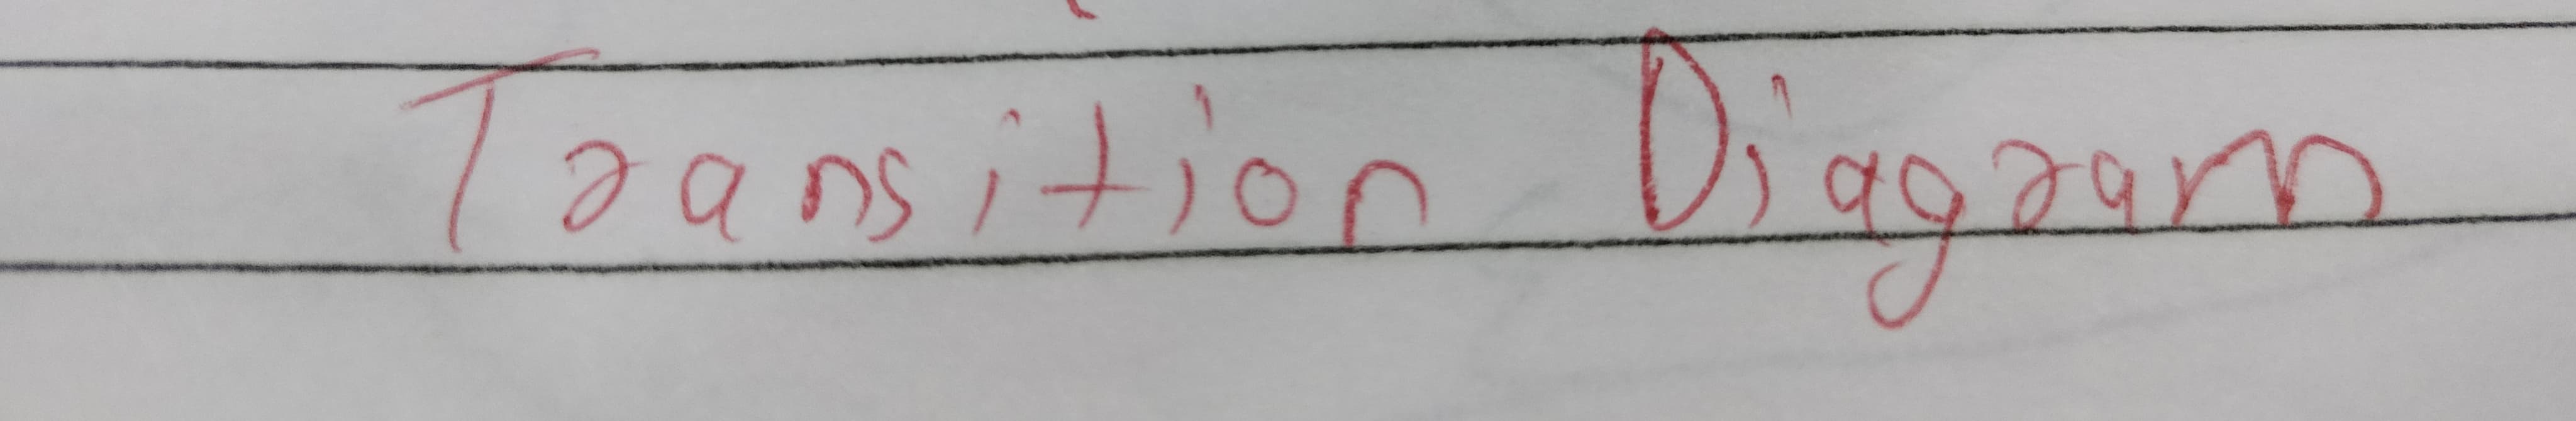 Transition Diagram